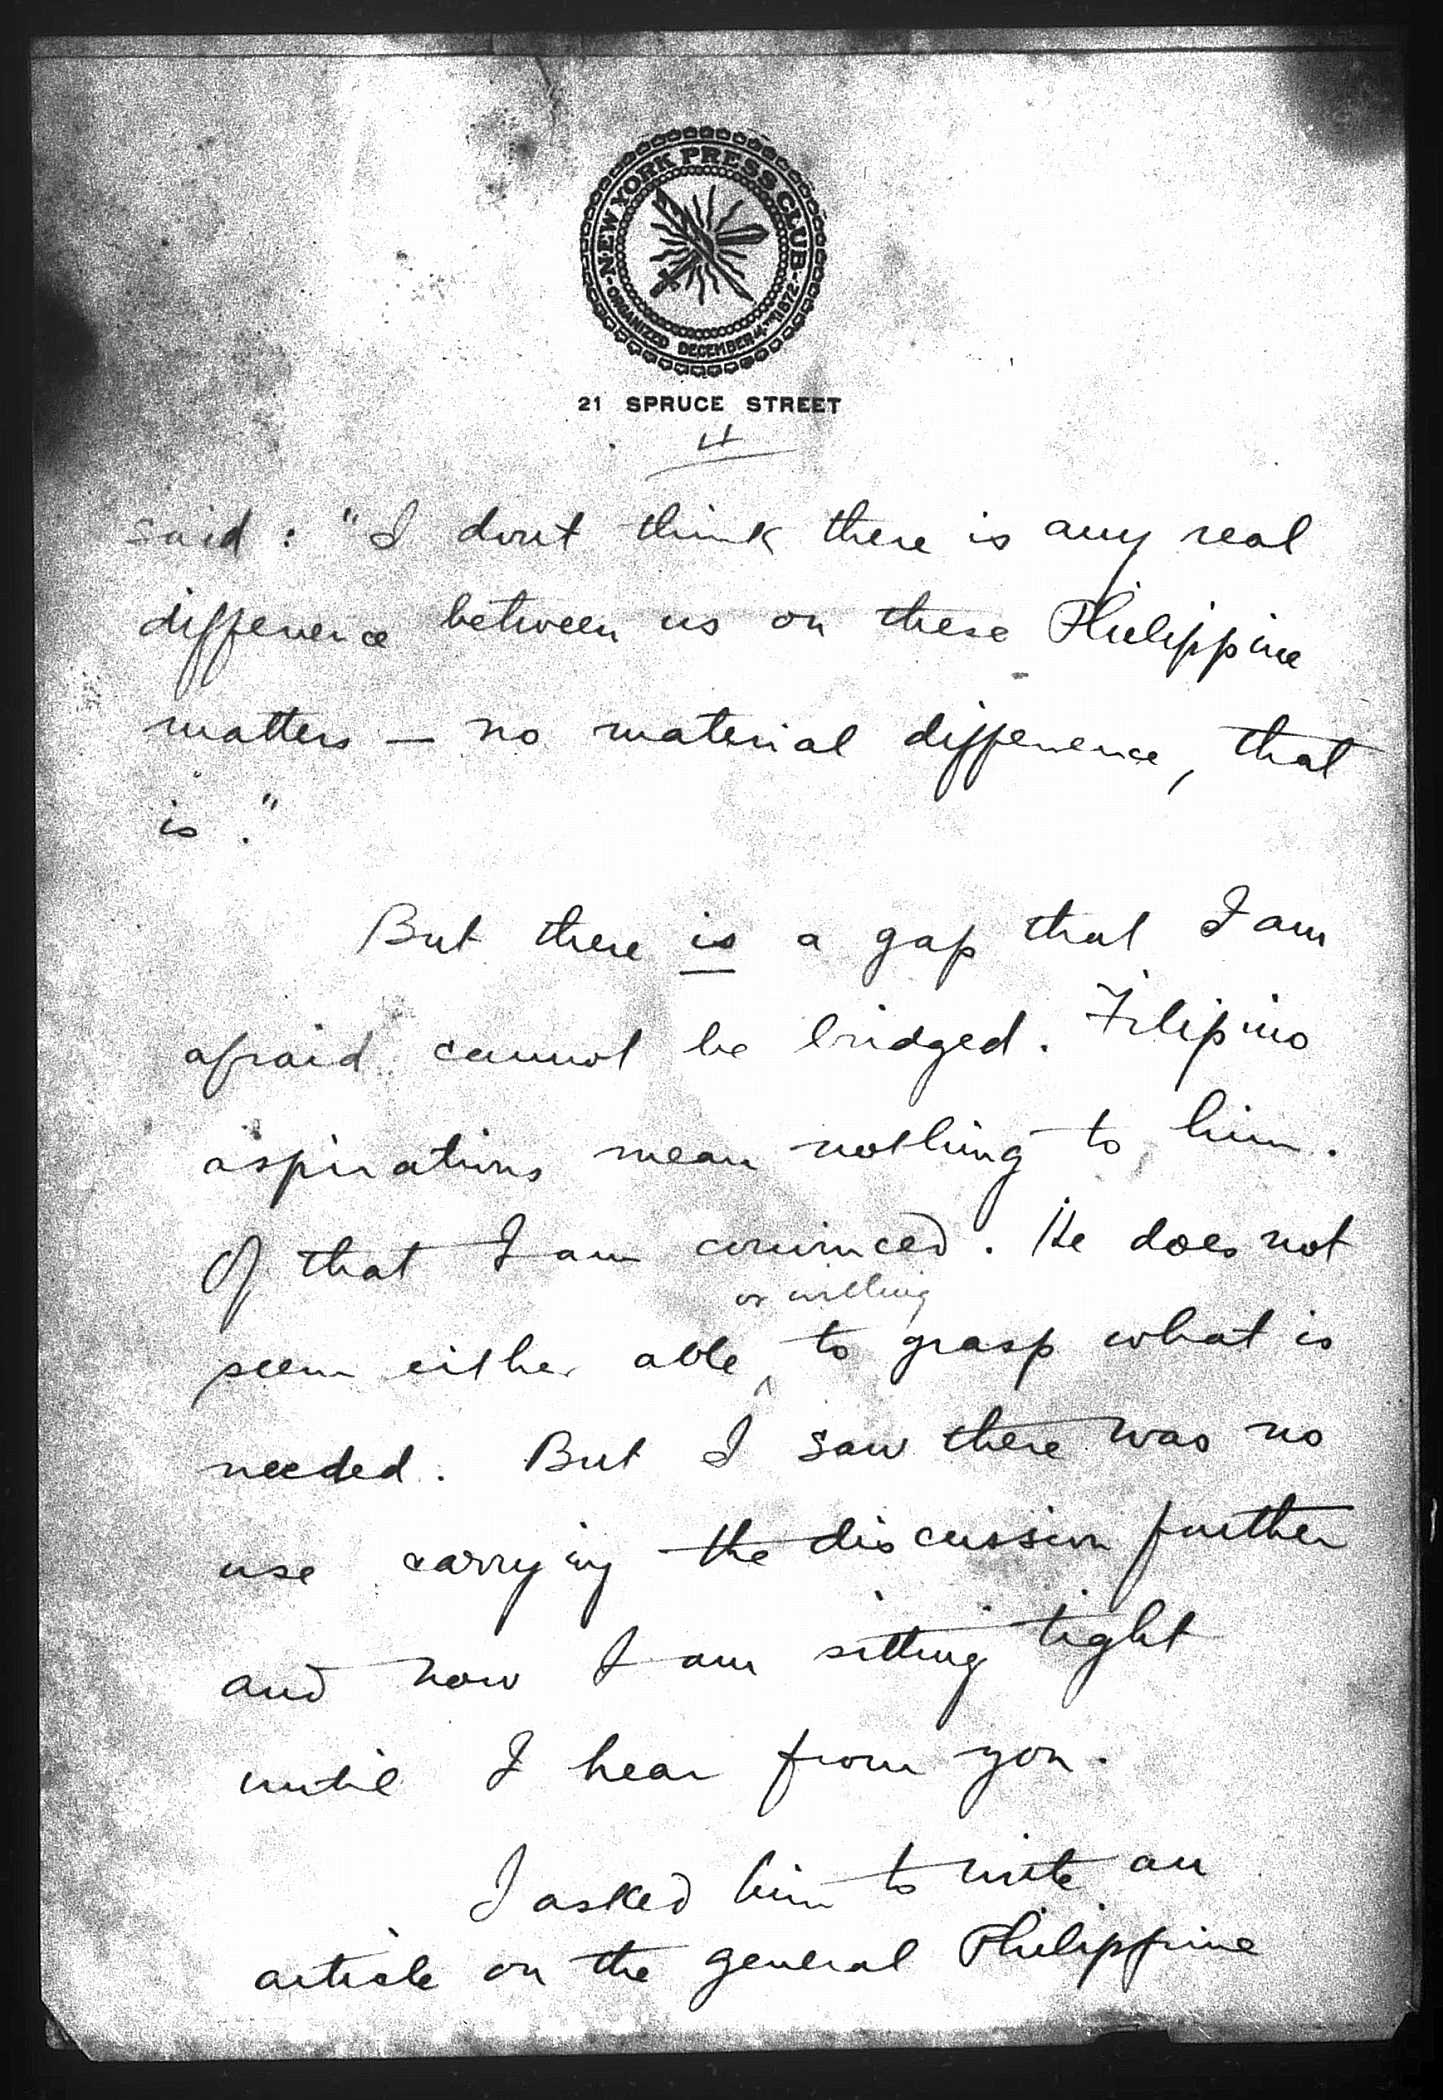 NEW YORK PRESS CLUB
ORGANIZED DECEMBER 14TH 1872
21 SPRUCE STREET
said : "I dont think there is any real
difference between us on these Philippine
matters — no material difference, that
is."
But there is a gap that I am
afraid cannot be bridged. Filipino
aspirations mean nothing to him.
Of that I am convinced. He does not
or willing
seem either able ^ to grasp what is
needed. But I saw there was no
use carrying the discussion further
and now I am sitting tight
until I hear from you.
I asked him to write an
article on the general Philippine